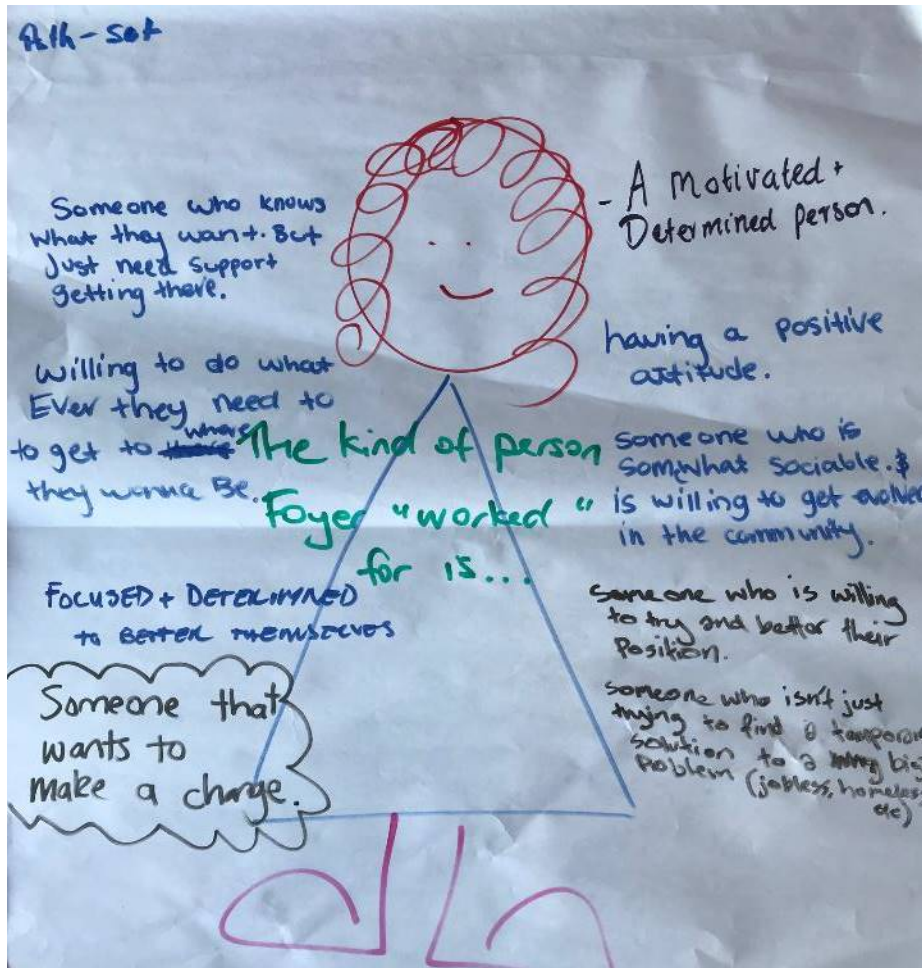 Someone who knows
what they want. But
Just need support
getting there.
willing to do what
Ever they need to
to get to where
they wanna Be.
FOCUSED + DETERMINED
to BETTER THEMSELVES
Someone that
wants to
make a change.
The kind of person
Foyer "worked"
for is...
- A Motivated +
Determined person.
having a positive
attitude.
someone who is
somwhat sociable. &
is willing to get
in the community.
someone who is willing
to try and better their
Position.
someone who isn't just
trying to find a
solution to a big
Problem (jobless,
etc)